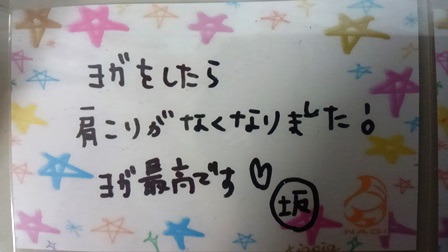 ヨガをしたら
肩こりがなくなりました!
ヨガ最高です♡
坂
NAGI